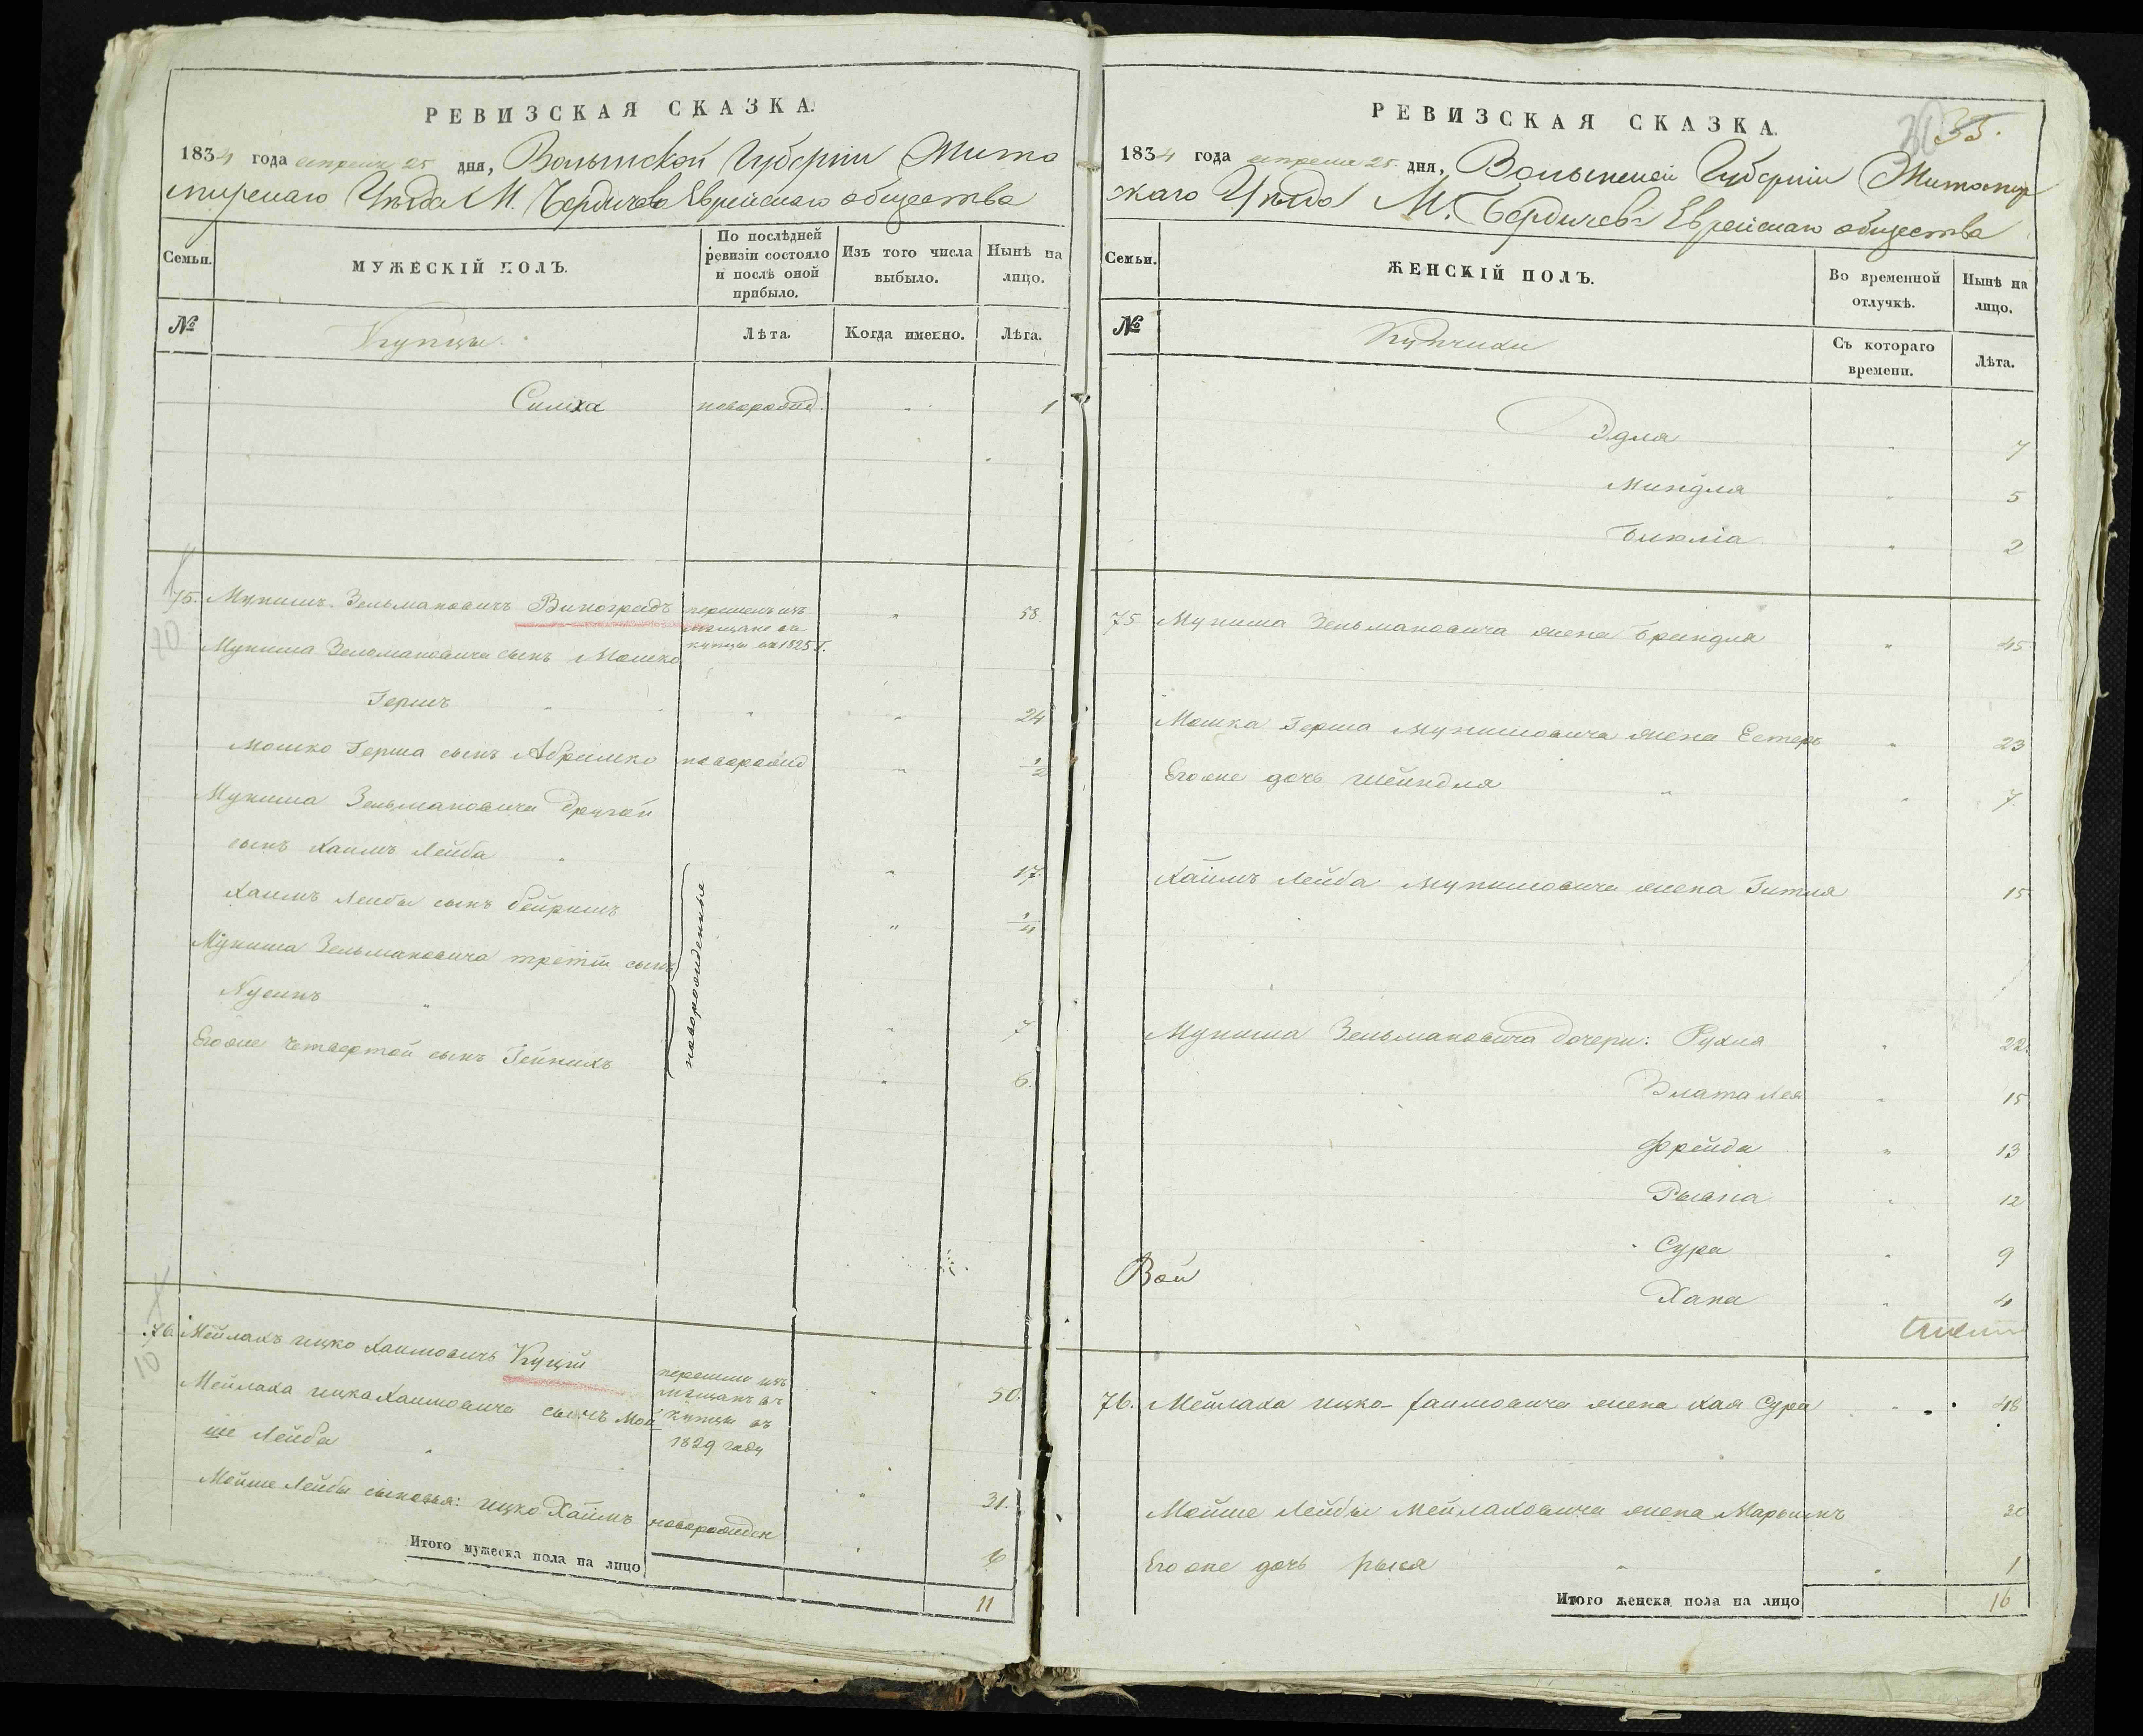 РЕВИЗСКАЯ СКАЗКА.
1834 года апреля 25 дня, Волынской Губернiи Жито
мирскаго Уѣзда М. Бердичева Еврейскаго общества
Семьи.
МУЖЕСКIЙ ПОЛЪ.
По послѣдней
ревизiи состояло
и послѣ оной
прибыло.
Изъ того числа
выбыло.
Нынѣ на
лицо.
№
Купцы.
Лѣта.
Когда именно.
Лѣта.
Симха новорожд. " 1
75. Мунишъ Зельмановичъ Виноградъ " 58
перешелъ изъ
мещанъ въ
купцы въ 1825 г.
70
Муниша Зельмановича сынъ Мошко
Гершъ " " " 24
Мошко Герша сынъ Абрамко новорожд " 1/2
Муниша Зельмановича другой
сынъ Хаимъ Лейба " " 17.
Хаимъ Лейбы сынъ Бейришъ " 1/4
Муниша Зельмановича третiй сынъ
Нусинъ " " 7
Егоже четвертой сынъ Гейнихъ " 6.
новорожденные
76. Мейлахъ Ицко Хаимовичъ Куцiй " 50.
перешли изъ
мещанъ въ
купцы въ
1829 году
10
Мейлаха Ицка Хаимовича сынъ Мой
ше Лейба " " 31.
Мойше Лейбы сыновья: Ицко Хаимъ новорожден " 6
Итого мужеска пола на лицо
11
РЕВИЗСКАЯ СКАЗКА.
35.
1834 года апреля 25. дня, Волынской Губернiи Житомир
скаго Уѣзда М. Бердичева Еврейскаго общества
Семьи.
ЖЕНСКIЙ ПОЛЪ.
Во временной
отлучкѣ.
Нынѣ на
лицо.
№
Купчихи
Съ котораго
времени.
Лѣта.
Эдля " 7
Миндля " 5
" 2
75 Муниша Зельмановича жена Брейндля " 45
Мошка Герша Мунишовича жена Естеръ " 23
Егоже дочь Шейндля " " 7.
Хаимъ Лейба Мунишовича жена Гитля 15
Муниша Зельмановича дочери: Рухля " 22.
Злата Лея " 15
Фрейда " 13
Рывка " 12
Сура " 9
Вой
Хана " 4
76. Мейлаха Ицко Хаимовича жена Хая Сура " 48
Мойше Лейбы Мейлаховича жена Марьимъ 30
Егоже дочь Рыся " " 1
Итого женска пола на лицо
16